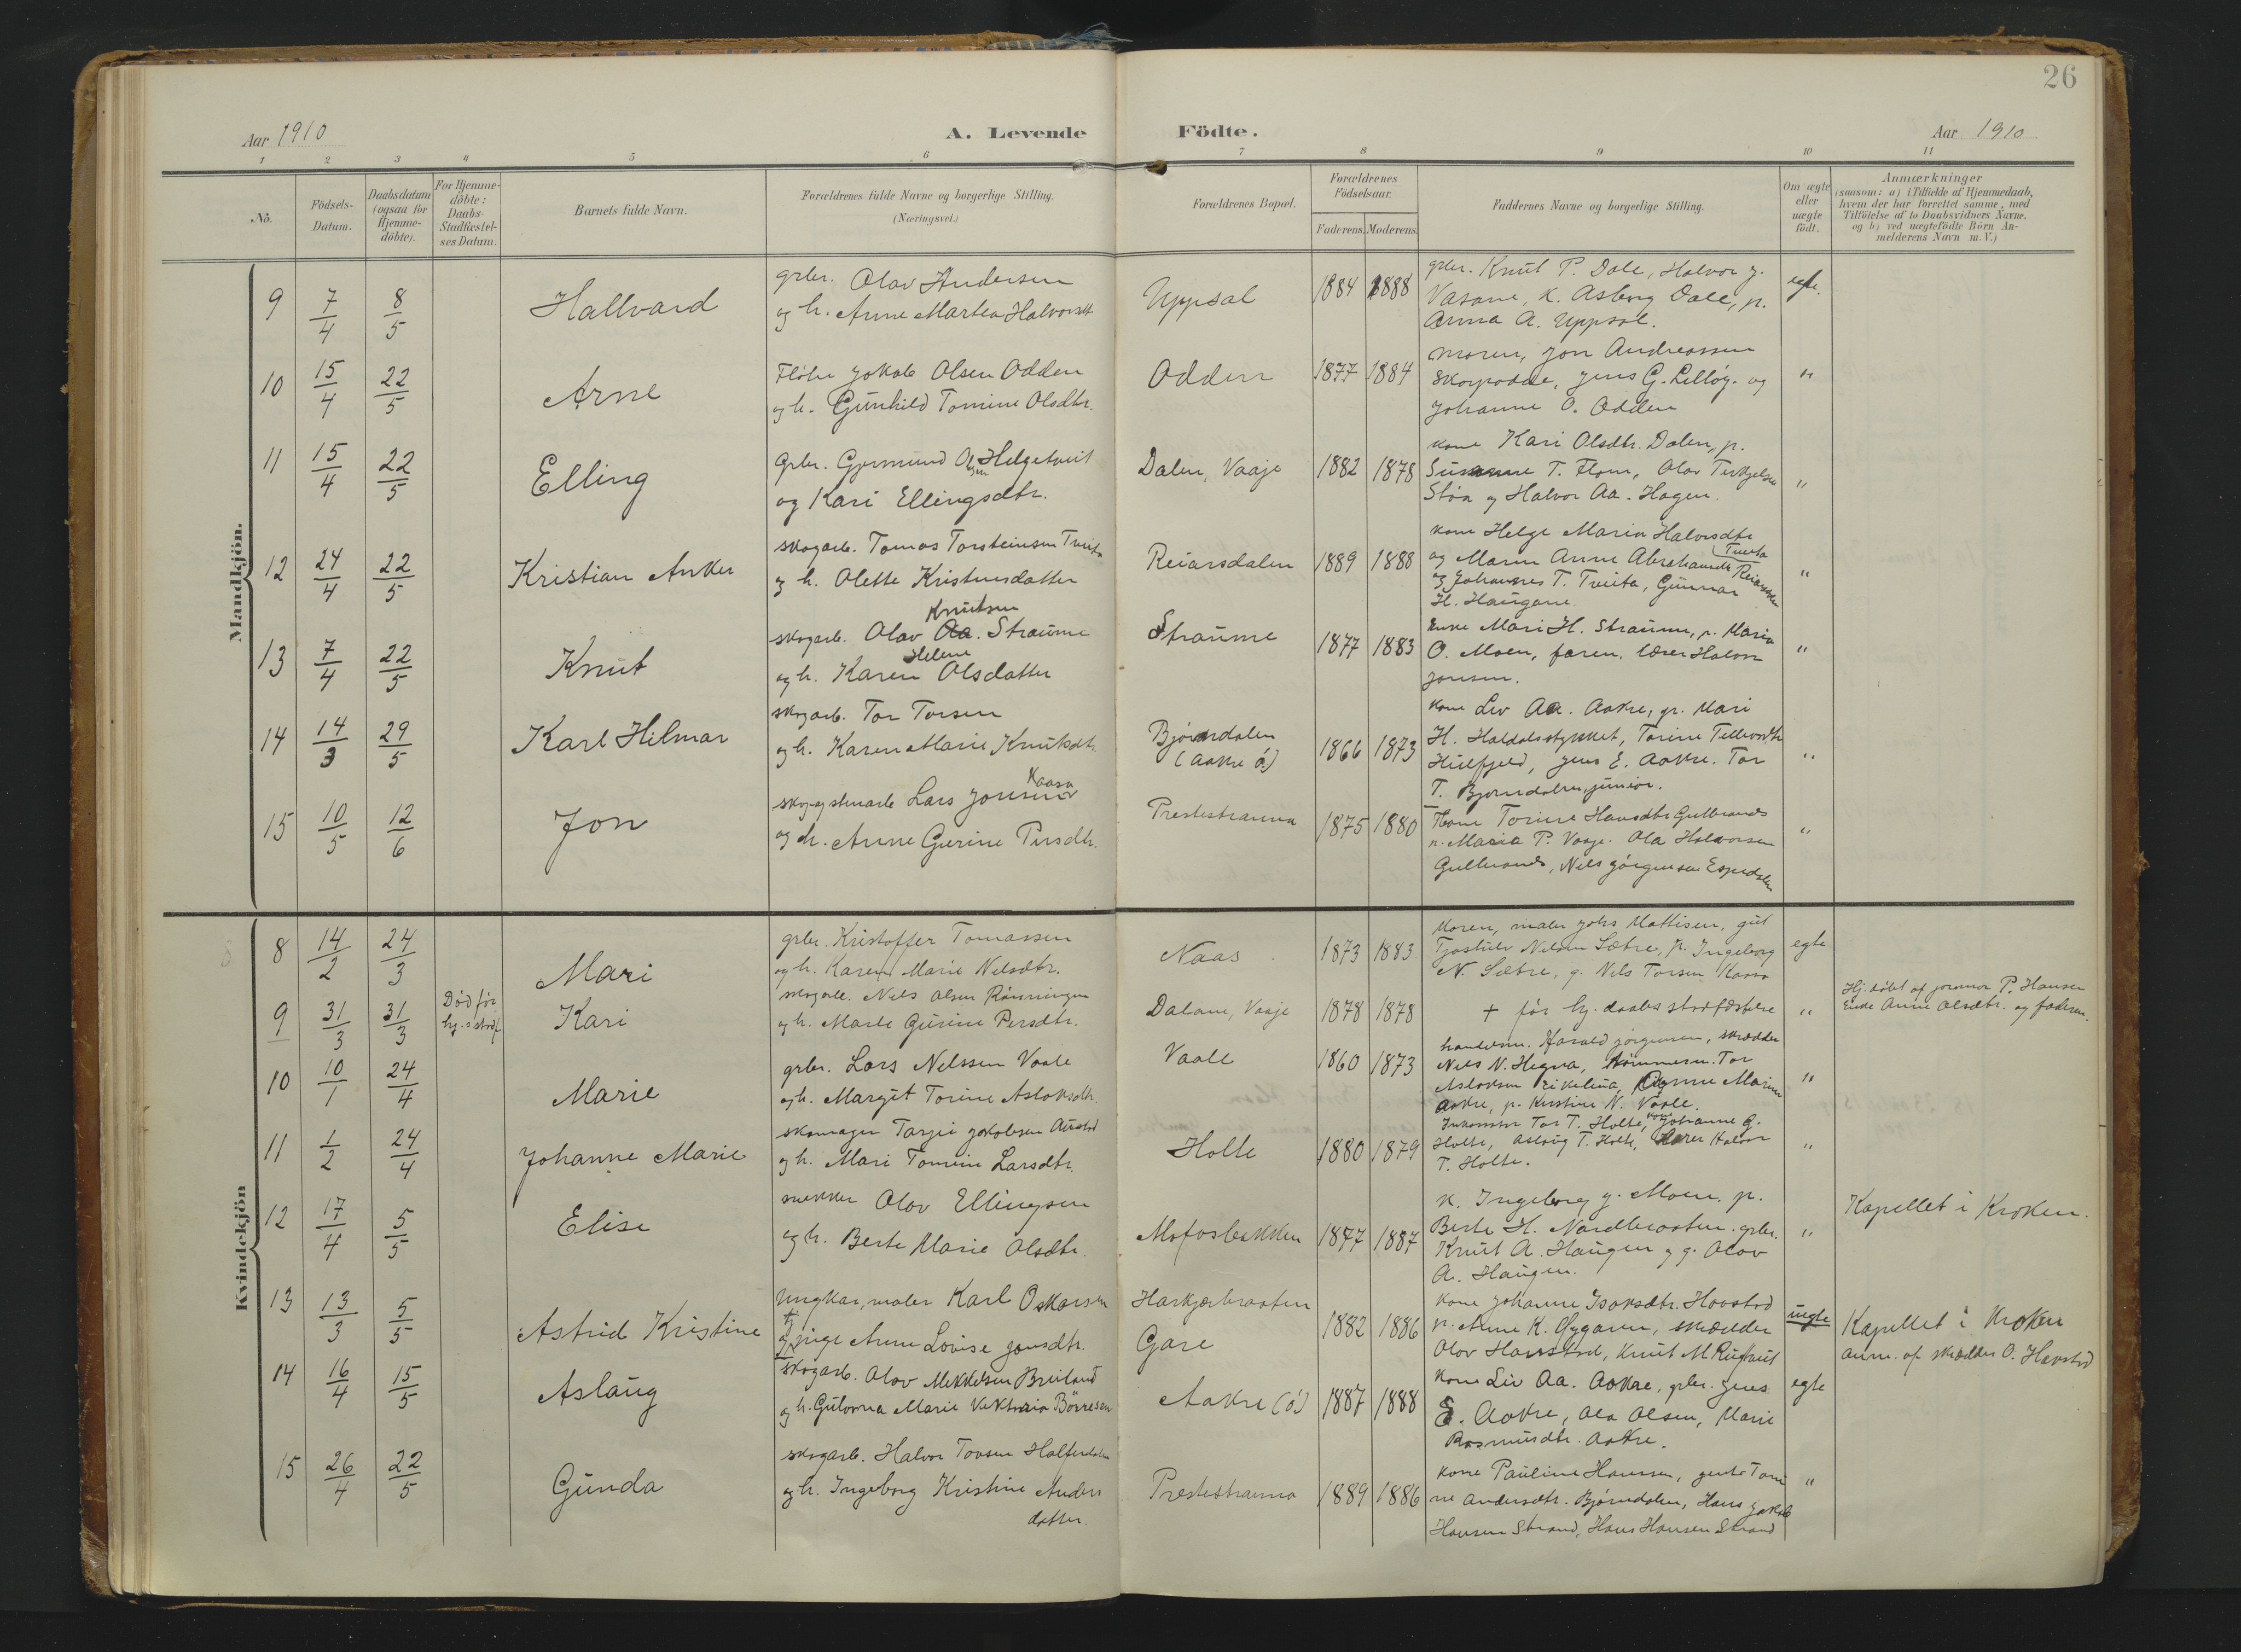 26
Aar 1910 A. Levende Födte. Aar 1910
1 2 3 4 5 6 7 8 9 10 11
No.
Födsels-Datum.
Daabsdatum (ogsaa for Hjemme-döbte).
For Hjemme-döbte: Daabs-Stadfæstel-ses Datum.
Barnets fulde Navn.
Forældrenes fulde Navne og borgerlige Stilling.
(Næringsvei.)
Forældrenes Bopæl.
Forældrenes Födselsaar.
Faderens. Moderens.
Faddernes Navne og borgerlige Stilling.
Om ægte eller uægte födt.
Anmærkninger
(saasom: a) i Tilfælde af Hjemmedaab,
hvem der har forrettet samme, med
Tilföielse af to Daabsvidners Navne.
og b) ved uægtefödte Börn An-
melderens Navn m. V.)
Mandkjön.
9 7/4 8/5 Hallvard
grbr. Olav Andersen
og h. Anne Martea Halvorsdt
Uppsal 1884 1888
grbr. Knut P. Dale, Halvor g.
Vasane, k. Asborg Dale, p.
Anna A. Uppsal.
egte.
10 15/4 22/5 Arne
Fløter Jokab Olsen Odden
og h. Gunhild Tomine Olsdtr.
Odden 1877 1884
Moren, Jon Andreassen
Skorpodde, Jens G. Lilløy. og
Johanne O. Odden
"
11 15/4 22/5 Elling
Grbr. Gjermund Olsen Helgetveit
og Kari Ellingsdtr.
Dalen, Vaaje 1882 1878
kone Kari Olsdtr. Dalen, p.
Susanne T. Flom, Olav Terkjelsen
Støa og Halvor Aa. Hagen.
"
12 24/4 22/5 Kristian Anker
skogarb. Tomas Torsteinsen Tveita
og h. Olette Kristensdatter
Reiarsdalen 1889 1888
kone Helge Maria Halvorsdtr
og Maren Anne Abrahamdt Tveita
og Johannes T. Tveita, Gunnar
H. Haugane.
"
13 7/4 22/5 Knut
Knutsen
skogarb. Olav Aa. Straume
Helene
og h. Karen Olsdatter
Straume 1877 1883
Enke Mari H. Straume, p. Maria
O. Moen, faren, lærer Halvor
Jonsen.
"
14 14/3 29/5 Karl Hilmar
skogarb. Tor Torsen
og h. Karen Marie Knutsdtr
Bjørndalen
(Aakre ø.) 1866 1873
kone Liv Aa. Aakre, p. Mari
H. Haldalsstykket, Torine Tellevsdtr
Hulfjeld, Jens E. Aakre. Tor
T. Bjørndalen, junior.
"
15 10/5 12/6 Jon
Kaasa
skog og stenarb Lars Jonsen
og h. Anne Gurine Persdtr.
Prestestranna 1875 1880
Kone Torine Hansdtr Gulbrands
p. Maria P. Vaaje. Ola Halvorsen
Gulbrands, Nels Jørgensen Espedalen
"
Kvindekjön
8 14/2 24/3 Mari
grbr. Kristoffer Tomassen
og h. Karen Marie Nelsdtr.
Naas 1873 1883
Moren, maler Johs Mattisen, gut
Tjostulv Nelsen Sætre, p. Ingeborg
N. Sætre, g. Nils Torsen Kaasa
egte
9 31/3 31/3 Død før
hj. d stadf. Kari
skogarb. Nils Olsen Rønningen
og h. Marte Gurine Persdtr.
Dalane, Vaaje 1878 1878
+ før hj. daabs stadfæstelse
"
Hj. døbt af jormor P. Hansen
Enke Anne Olsdtr. og faderen.
10 10/1 24/4 Marie
grbr. Lars Nelssen Vaale
og h. Margit Torine Aslaksdtr.
Vaale 1860 1873
handelsm. Harald Jørgensen, skrædder
Nils N. Hegna, tømmerm. Tor
Aslaksen Eikelina, Anne Marie
Aakre, p. Kirstine N. Vaale.
"
11 1/2 24/4 Johanne Marie
skomager Tarjei Jakobsen Austad
og h. Mari Tomine Larsdtr.
Holte 1880 1879
Inkassator Tor T. Holte, kone Johanne G.
Holte, Aslaug T. Holte, lærer Halvor
T. Holte.
"
12 17/4 5/5 Elise
snekker Olav Ellingsen
og h. Berte Marie Olsdtr.
Mofosbakken 1877 1887
k. Ingeborg g. Moen. p.
Berte H. Nordbraaten. grbr.
Knut A. Haugen og g. Olav
A. Haugen.
"
Kapellet i Kroken.
13 13/3 5/5 Astrid Kristine
Ungkar, maler Karl Oskarsen
og pige Anne Lovise Jonsdtr.
Harkjærbraaten
Gare 1882 1886
kone Johanne Isaksdtr. Havstad
p. Anne K. Gygaren, skrædder
Olav Havstad, Knut M Rughus
uegte
Kapellet i Kroken
anm. af skrædder O. Havstad
14 16/4 15/5 Aslaug
skogarb. Olav Mikkelsen Breiland
og h. Gulovna Marie Viktoria Børresen
Aakre (ø) 1887 1888
kone Liv Aa. Aakre, grbr. Jens
E. Aakre, Ola Olsen, Marie
Rasmusdtr. Aakre.
egte
15 26/4 22/5 Gunda
skogarb. Halvor Tovsen Halferdalen
og h. Ingeborg Kristine Anders
datter.
Prestestranna 1889 1886
kone Pauline Hanssen, gente Tomi
ne Andersdtr. Bjørndalen, Hans Jakob
Hansen Strand, Hans Hansen Strand
"